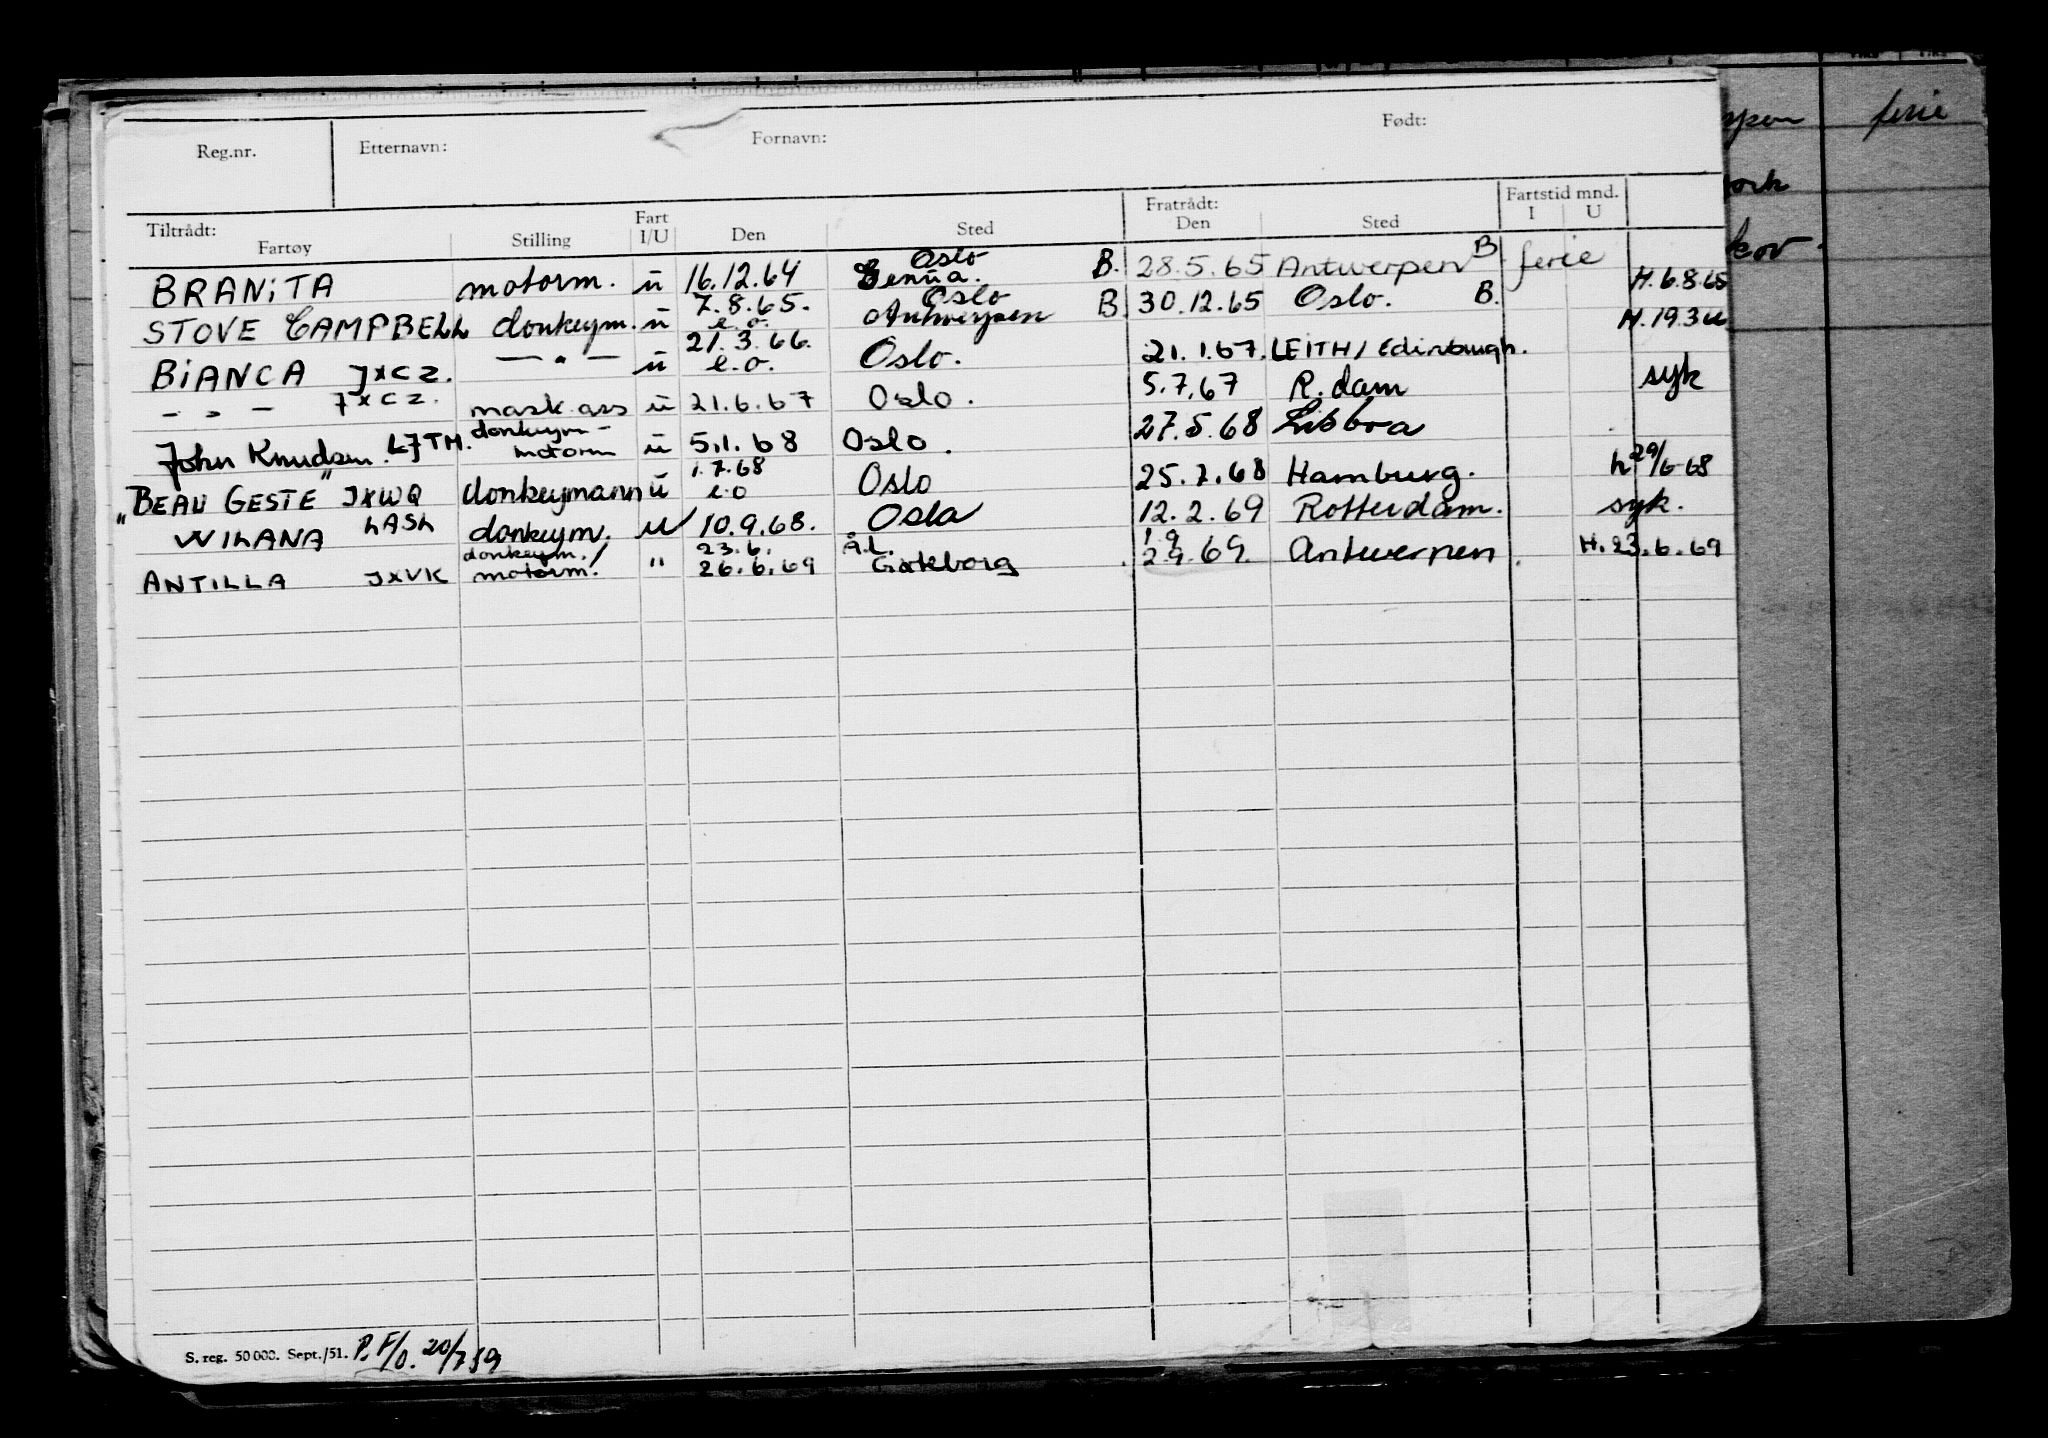 Reg.nr. Etternavn: Fornavn: Født:
Tiltrådt: Fartøy Stilling Fart I/U Den Sted Fratrådt: Den Sted Fartstid mnd. I U
BRANiTA motorm. u 16.12.64 Oslo Genua. B. 28.5.65 Antwerpen B ferie H.6.8.65
STOVE CAMPBELL donkeym. u 7.8.65. e.o. Oslo Antwerpen B 30.12.65 Oslo. B. H.19.3
BiANCA JXCZ. — " — u 21.3.66. e.o. Oslo. 21.1.67. LEITH/Edinburgh.
— " — JXCZ. mask.ass u 21.6.67 Oslo. 5.7.67 R.dam syk
John Knudsen. LJTH. donkeym- motorm u 5.1.68 Oslo. 27.5.68 Lisboa
"BEAU GESTE" JXWQ donkeymann u 1.7.68 e.o Oslo 25.7.68 Hamburg. h 29/6-68
WILANA LASL donkeym. u 10.9.68. Oslo 12.2.69 Rotterdam. syk.
ANTILLA JXVK donkeym./ motorm. " 23.6. 26.6.69 å.l. Gøteborg 1.9 2.9.69. Antwerpen H.23.6.69
S. reg. 50 000. Sept./51. P.F/O. 20/7 59
ferie